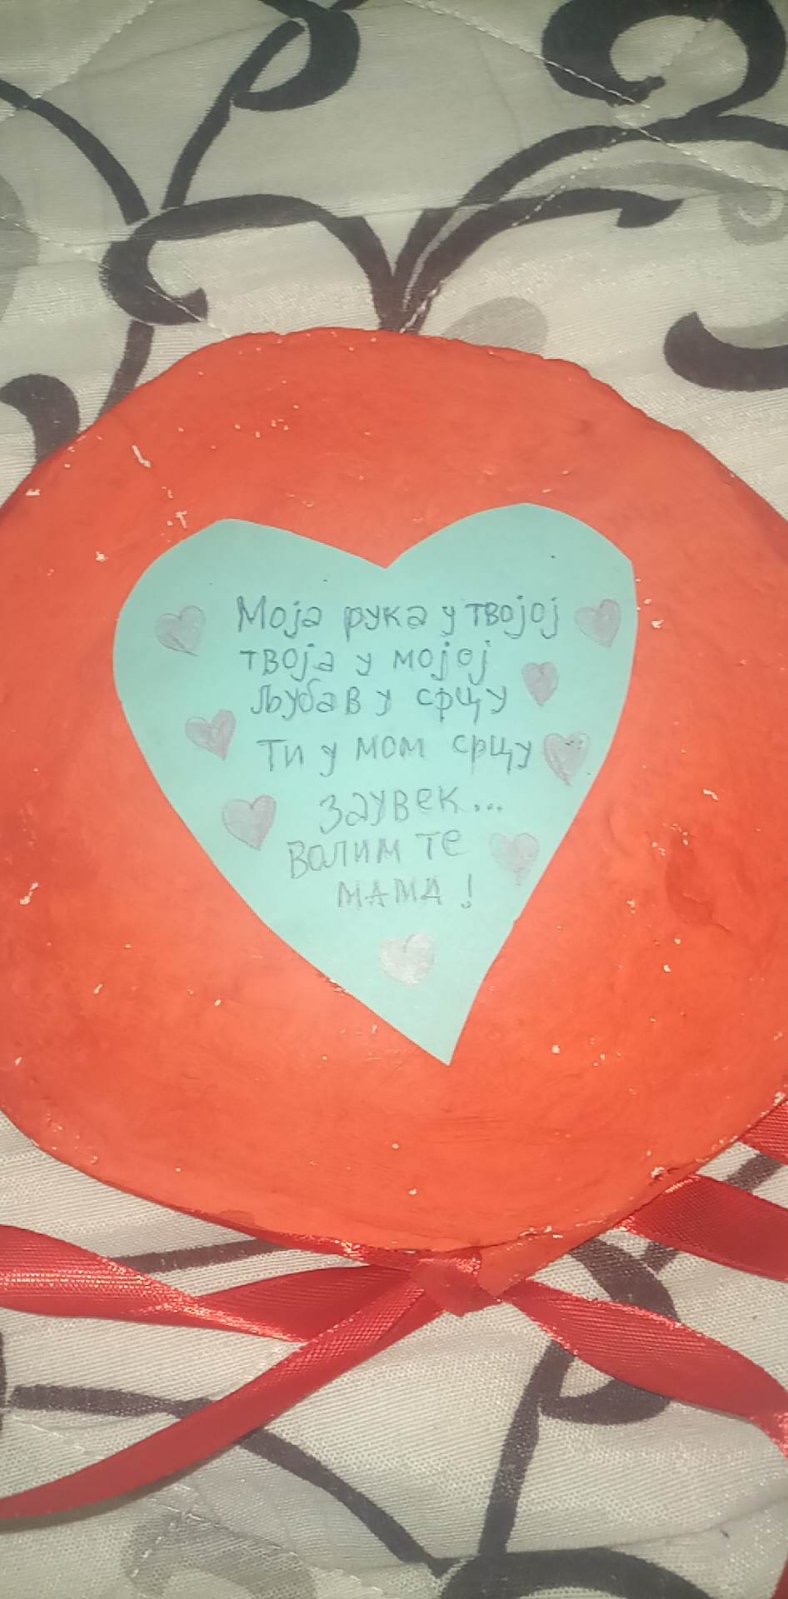 Моја рука у твојој
твоја у мојој
љубав у срцу
Ти у мом срцу
заувек...
Волим те
мама!